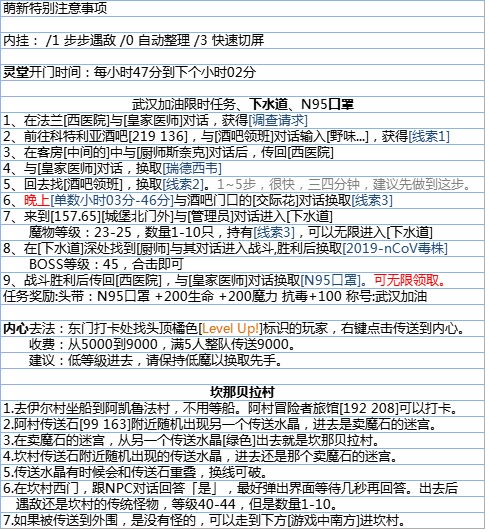 萌新特别注意事项
内挂： /1 步步遇敌 /0 自动整理 /3 快速切屏
灵堂开门时间：每小时47分到下个小时02分
武汉加油限时任务、下水道、N95口罩
1、在法兰[西医院]与[皇家医师]对话，获得[调查请求]
2、前往科特利亚酒吧[219 136]，与[酒吧领班]对话输入[野味...]，获得[线索1]
3、在客房[中间的]中与[厨师斯奈克]对话后，传回[西医院]
4、与[皇家医师]对话，换取[瑞德西韦]
5、回去找[酒吧领班]，换取[线索2]。1~5步，很快，三四分钟，建议先做到这步。
6、晚上[单数小时03分-46分]与酒吧门囗的[交际花]对话换取[线索3]
7、来到[157.65][城堡北门外]与[管理员]对话进入[下水道]
魔物等级：23-25，数量1-10只，持有[线索3]，可以无限进入[下水道]
8、在[下水道]深处找到[厨师]与其对话进入战斗,胜利后换取[2019-nCoV毒株]
BOSS等级：45，合击即可
9、战斗胜利后传回[西医院]，与[皇家医师]对话换取[N95口罩]。可无限领取。
任务奖励:头带：N95口罩 +200生命 +200魔力 抗毒+100 称号:武汉加油
内心去法：东门打卡处找头顶橘色[Level Up!]标识的玩家，右键点击传送到内心。
收费：从5000到9000，满5人整队传送9000。
建议：低等级进去，请保持低魔以换取先手。
坎那贝拉村
1.去伊尔村坐船到阿凯鲁法村，不用等船。阿村冒险者旅馆[192 208]可以打卡。
2.阿村传送石[99 163]附近随机出现另一个传送水晶，进去是卖魔石的迷宫。
3.在卖魔石的迷宫，从另一个传送水晶[绿色]出去就是坎那贝拉村。
4.坎村传送石附近随机出现的传送水晶，进去还是那个卖魔石的迷宫。
5.传送水晶有时候会和传送石重叠，换线可破。
6.在坎村西门，跟NPC对话回答「是」，最好弹出界面等待几秒再回答。出去后
遇敌还是坎村的传统怪物，等级40-44，但是数量1-10。
7.如果被传送到外围，是没有怪的，可以走到下方[游戏中南方]进坎村。